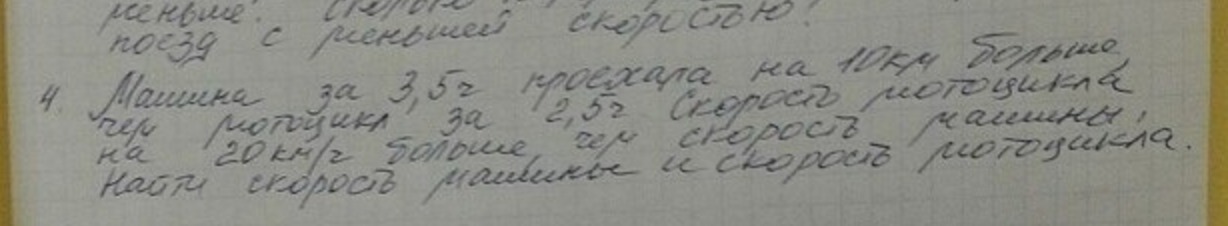 меньше. Сколько
поезд с меньшей скоростью?
4. Машина за 3,5ч проехала на 10км больше,
чем мотоцикл за 2,5ч Скорость мотоцикла
на 20км/ч больше, чем скорость машины.
Найти скорость машины и скорость мотоцикла.